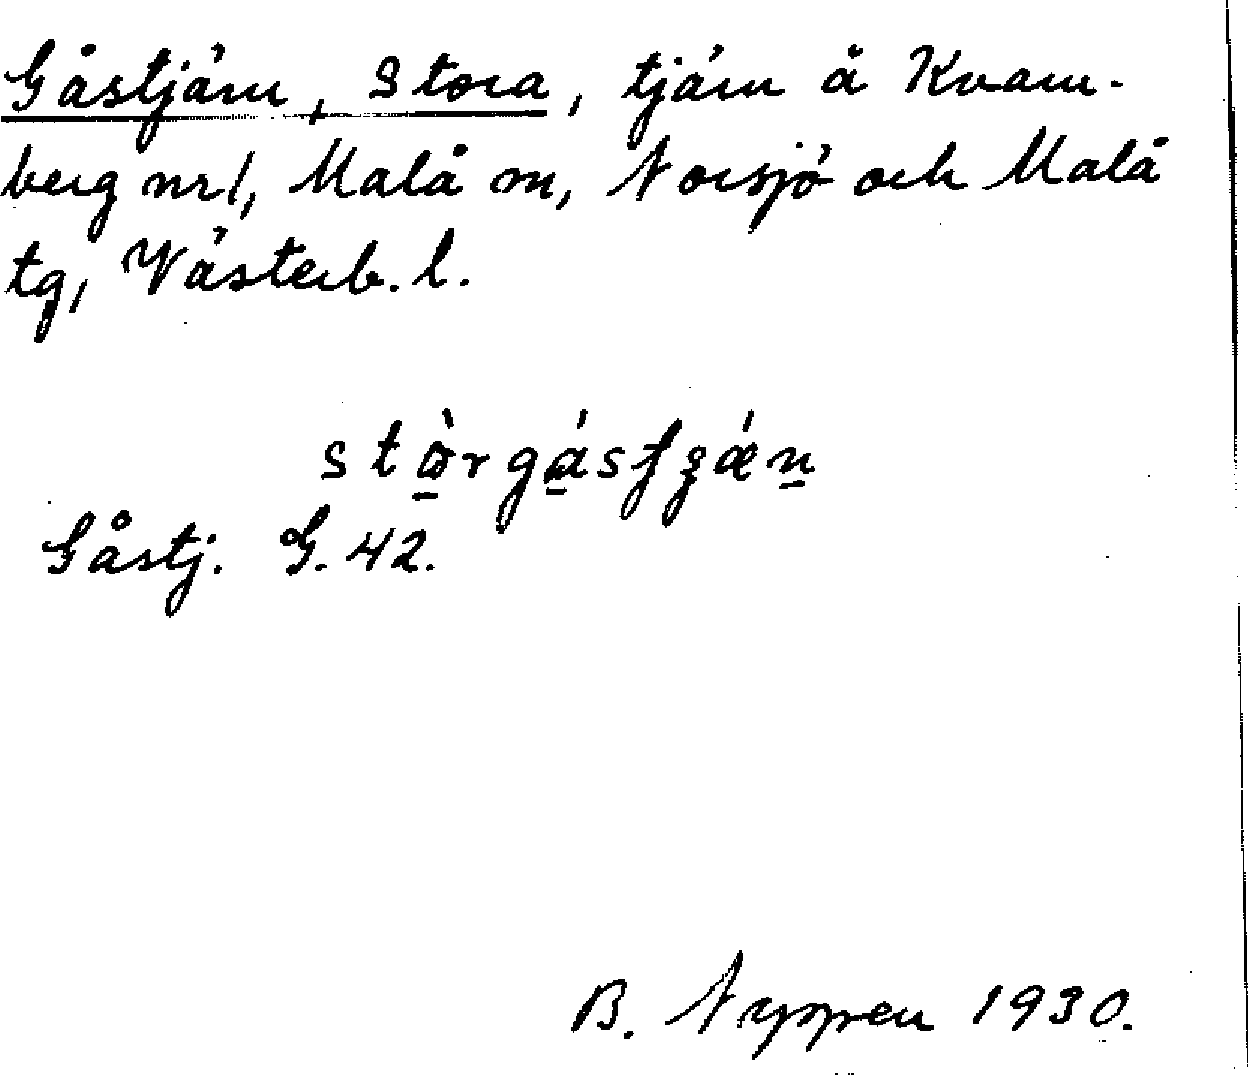 Gåstjärn, Stora, tjärn å Kvarn-
berg nr 1, Malå sn, Norsjö och Malå
tg, Västerb. l.
Gåstj. G. 42.
B. Nyppen 1930.